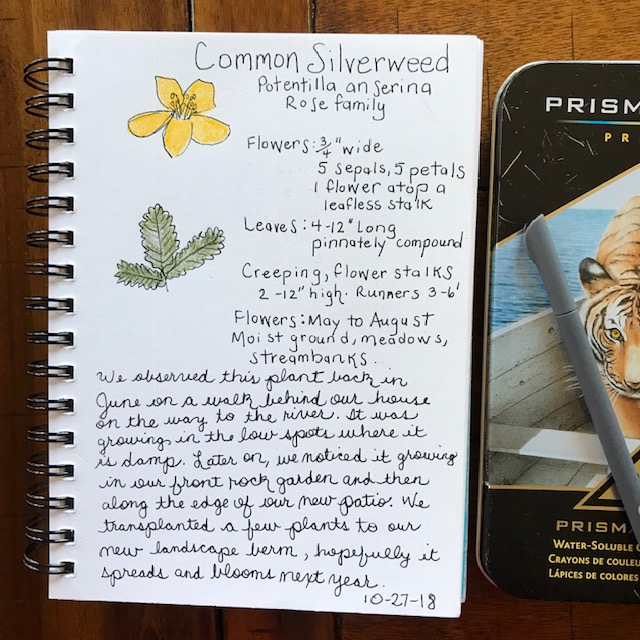 Common Silverweed
Potentilla anserina
Rose family
Flowers: 3/4" wide
5 sepals, 5 petals
1 flower atop a
leafless stalk
Leaves: 4-12" long
pinnately compound
Creeping, flower stalks
2-12" high. Runners 3-6'
Flowers: May to August
Moist ground, meadows,
streambanks.
We observed this plant back in
June on a walk behind our house
on the way to the river. It was
growing in the low spots where it
is damp. Later on, we noticed it growing
in our front rock garden and then
along the edge of our new patio. We
transplanted a few plants to our
new landscape berm, hopefully it
spreads and blooms next year.
10-27-18
PRISM
PR
PRISM
WATER-SOLUBLE
CRAYONS DE COULEU
LÁPICES DE COLORES